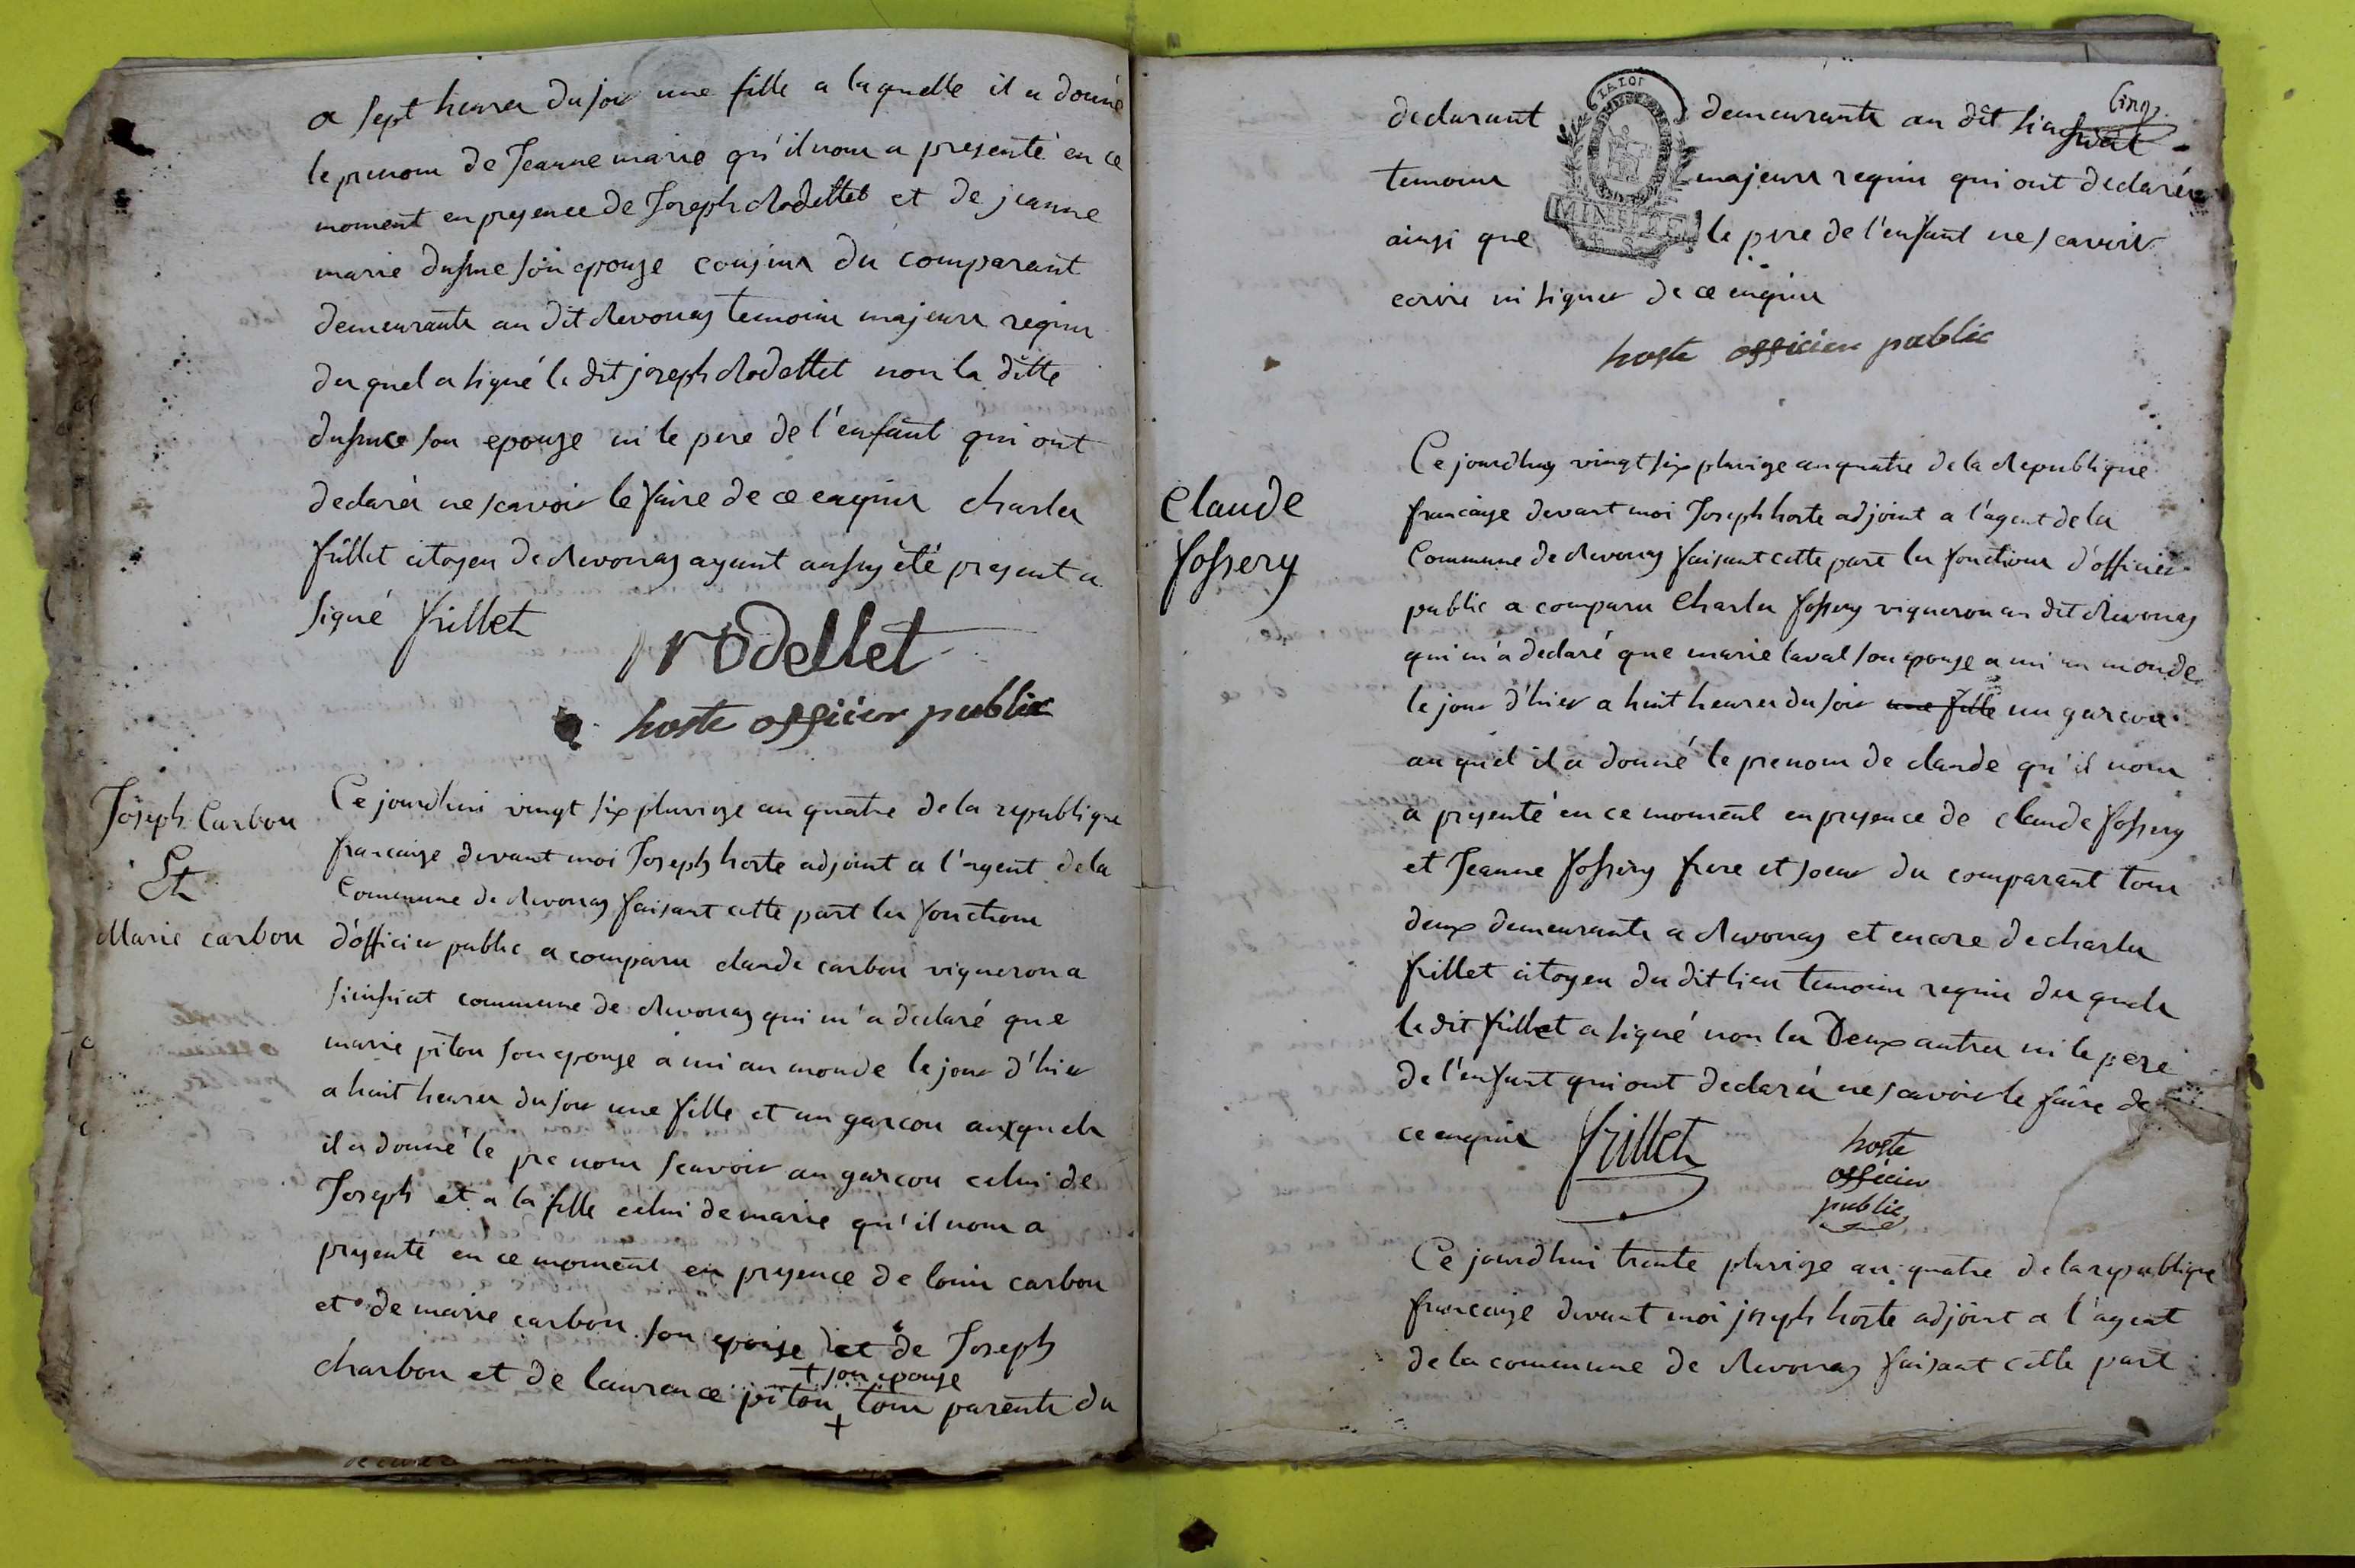 a sept heures du soir une fille a laquelle il a donné
le prenom de Jeanne marie qu'il nous a presenté en ce
moment en presence de Joseph Rodellet et de jeanne
marie son epouse cousins du comparant
demeurants au dit Revonas temoins majeurs requis
desquels a signé le dit joseph Rodellet non la ditte
son epouse ni le pere de l'enfant qui ont
declarés ne scavoir le faire de ce enquis charles
frillet citoyen de Revonas ayant aussy été present a
signé frillet
rodellet
hoste officier public
Joseph Carbon
Et
Marie carbon
Ce jourdhui vingt six pluviose an quatre de la republique
francaise devant moi Joseph hoste adjoint a l'agent de la
Commune de Revonas faisant cette part les fonctions
d'officier public a comparu claude carbon vigneron a
commune de Revonas qui m'a declaré que
marie piton son epouse a mis au monde le jour d'hier
a huit heures du soir une fille et un garcon auxquels
il a donné le prenom scavoir au garcon celui de
Joseph et a la fille celui de marie qu'il nous a
presenté en ce moment en presence de louis carbon
et de marie carbon son epouse et de Joseph
+ son epouse
charbon et de laurence piton + tous parents du
declarant demeurants au dit
cinq
temoins majeurs requis qui ont declarés
ainsi que le pere de l'enfant ne scavoir
ecrire ni signer de ce enquis
MINUTE
4 S
hoste officier public
Claude
fossery
Ce jourdhuy vingt six pluviose an quatre de la Republique
francaise devant moi Joseph hoste adjoint a l'agent de la
Commune de Revonas faisant cette part les fonctions d'officier
public a comparu Charles fossery vigneron au dit Revonas
qui m'a declaré que marie laval son epouse a mis au monde
le jour d'hier a huit heures du soir une fille un garcon
au quel il a donné le prenom de claude qu'il nous
a presenté en ce moment en presence de claude fossery
et Jeanne fossery frere et soeur du comparant tous
deux demeurants a Revonas et encore de charles
frillet citoyen du dit lieu temoins requis des quels
le dit frillet a signé non les Deux autres ni le pere
de l'enfant qui ont declarés ne scavoir le faire de
ce enquis frillet
hoste
officier
public
Ce jourdhui trente pluviose an quatre de la republique
francaise devant moi joseph hoste adjoint a l'agent
de la commune de Revonas faisant cette part